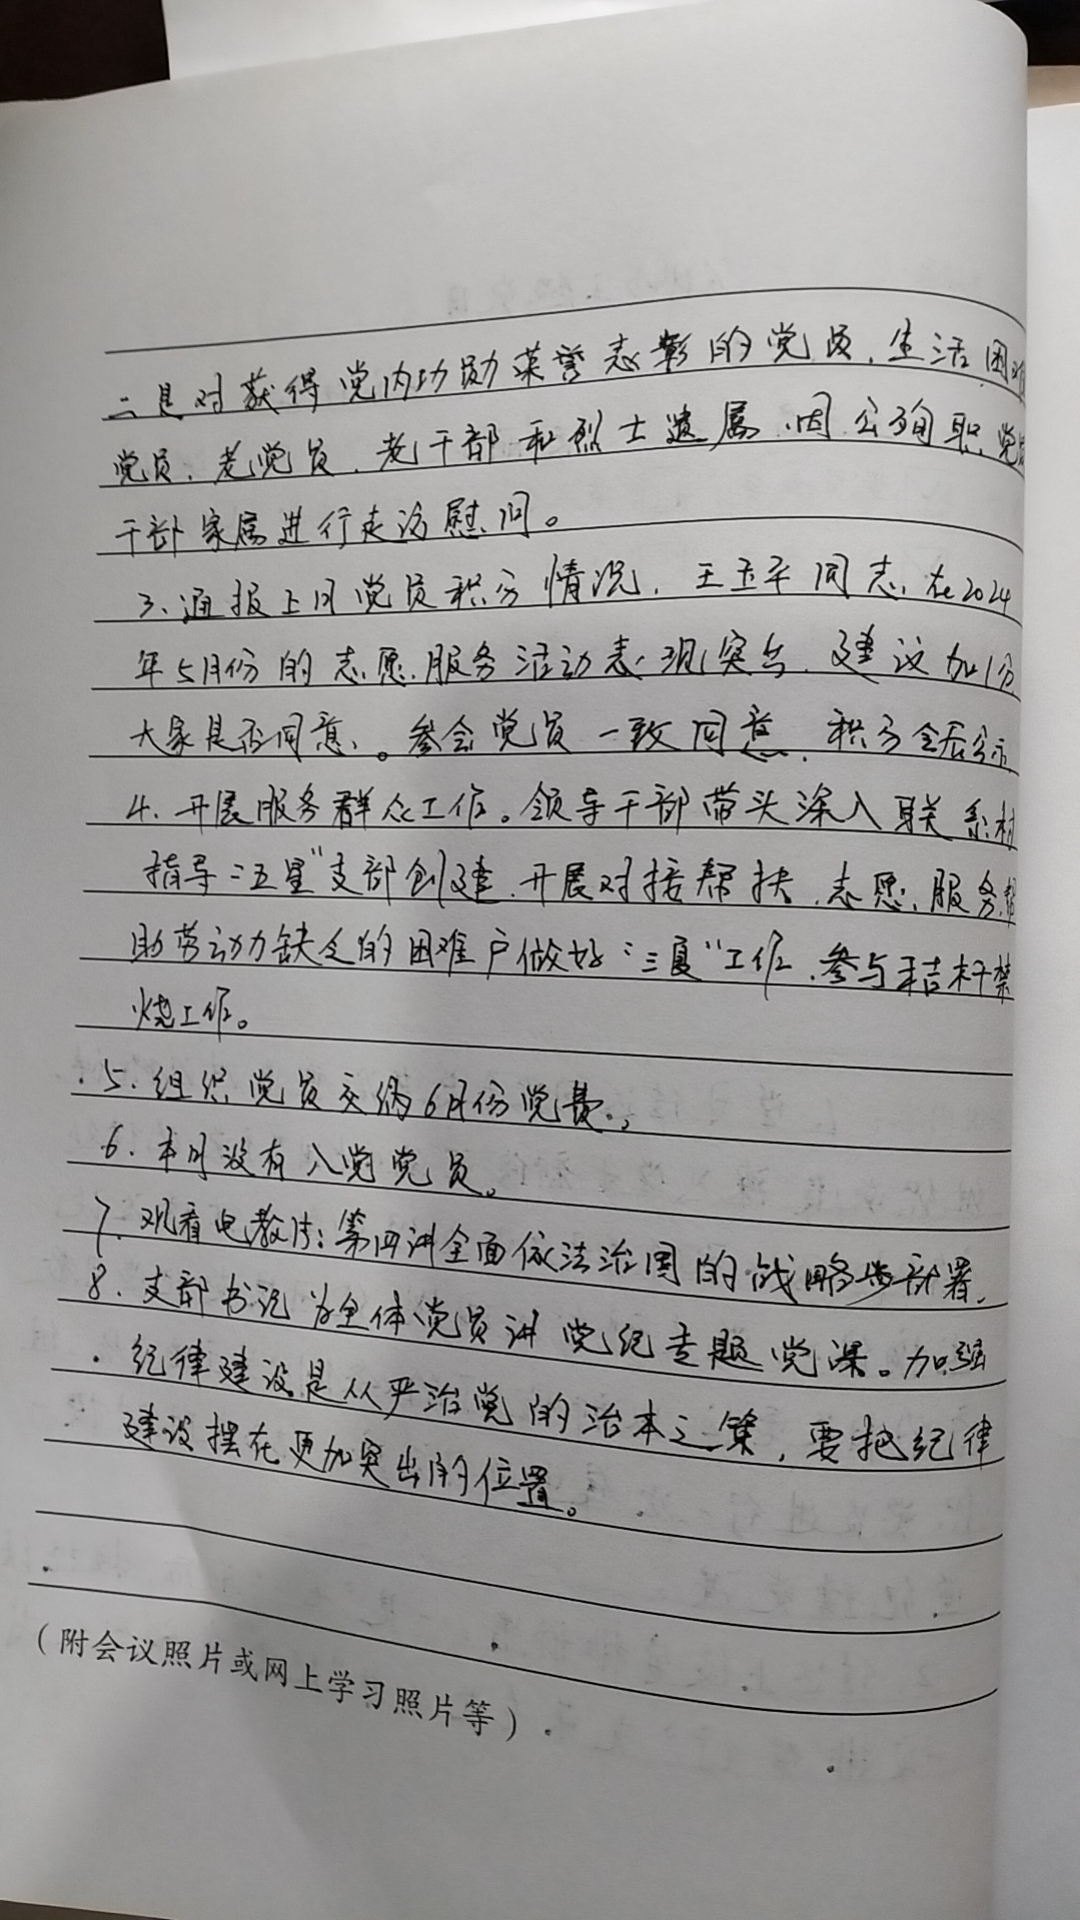 二是对获得党内功勋荣誉表彰的党员、生活困难
党员、老党员、老干部和烈士遗属、因公殉职党员
干部家属进行走访慰问。
3、通报上月党员积分情况，王玉平同志，在2024
年5月份的志愿服务活动表现突出，建议加1分
大家是否同意。参会党员一致同意，积分会后公示
4、开展服务群众工作。领导干部带头深入联系村
指导“五星”支部创建，开展对接帮扶、志愿服务，帮
助劳动力缺乏的困难户做好“三夏”工作，参与秸秆禁
烧工作。
5、组织党员交纳6月份党费。
6、本月没有入党党员。
7、观看电教片：第四讲全面依法治国的战略步部署。
8、支部书记为全体党员讲党纪专题党课。加强
纪律建设是从严治党的治本之策，要把纪律
建设摆在更加突出的位置。
（附会议照片或网上学习照片等）